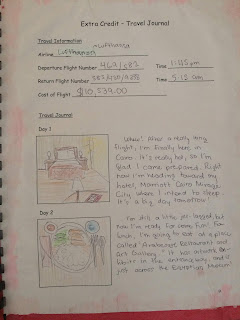 Extra Credit - Travel Journal
Travel Information
Lufthansa
Airline
Departure Flight Number 463/683 Time 11:15 pm
Return Flight Number Time 5:12 am
Cost of Flight $10,539.00
Travel Journal
Day 1
Whew! After a really long
flight, I'm finally here in
Cairo. It's really hot, so I'm
glad I came prepared. Right
now I'm heading toward my
hotel, Marriott Cairo Mirage
City where I intend to sleep.
It's a big day tomorrow!
Day 2
I'm still a bit jet-lagged, but
now I'm ready for some fun! For
lunch, I'm going to eat at a place
called Arabesque Restaurant and
Art Gallery. It has artwork
in the entranceway and is
just across the Egyptian Museum!